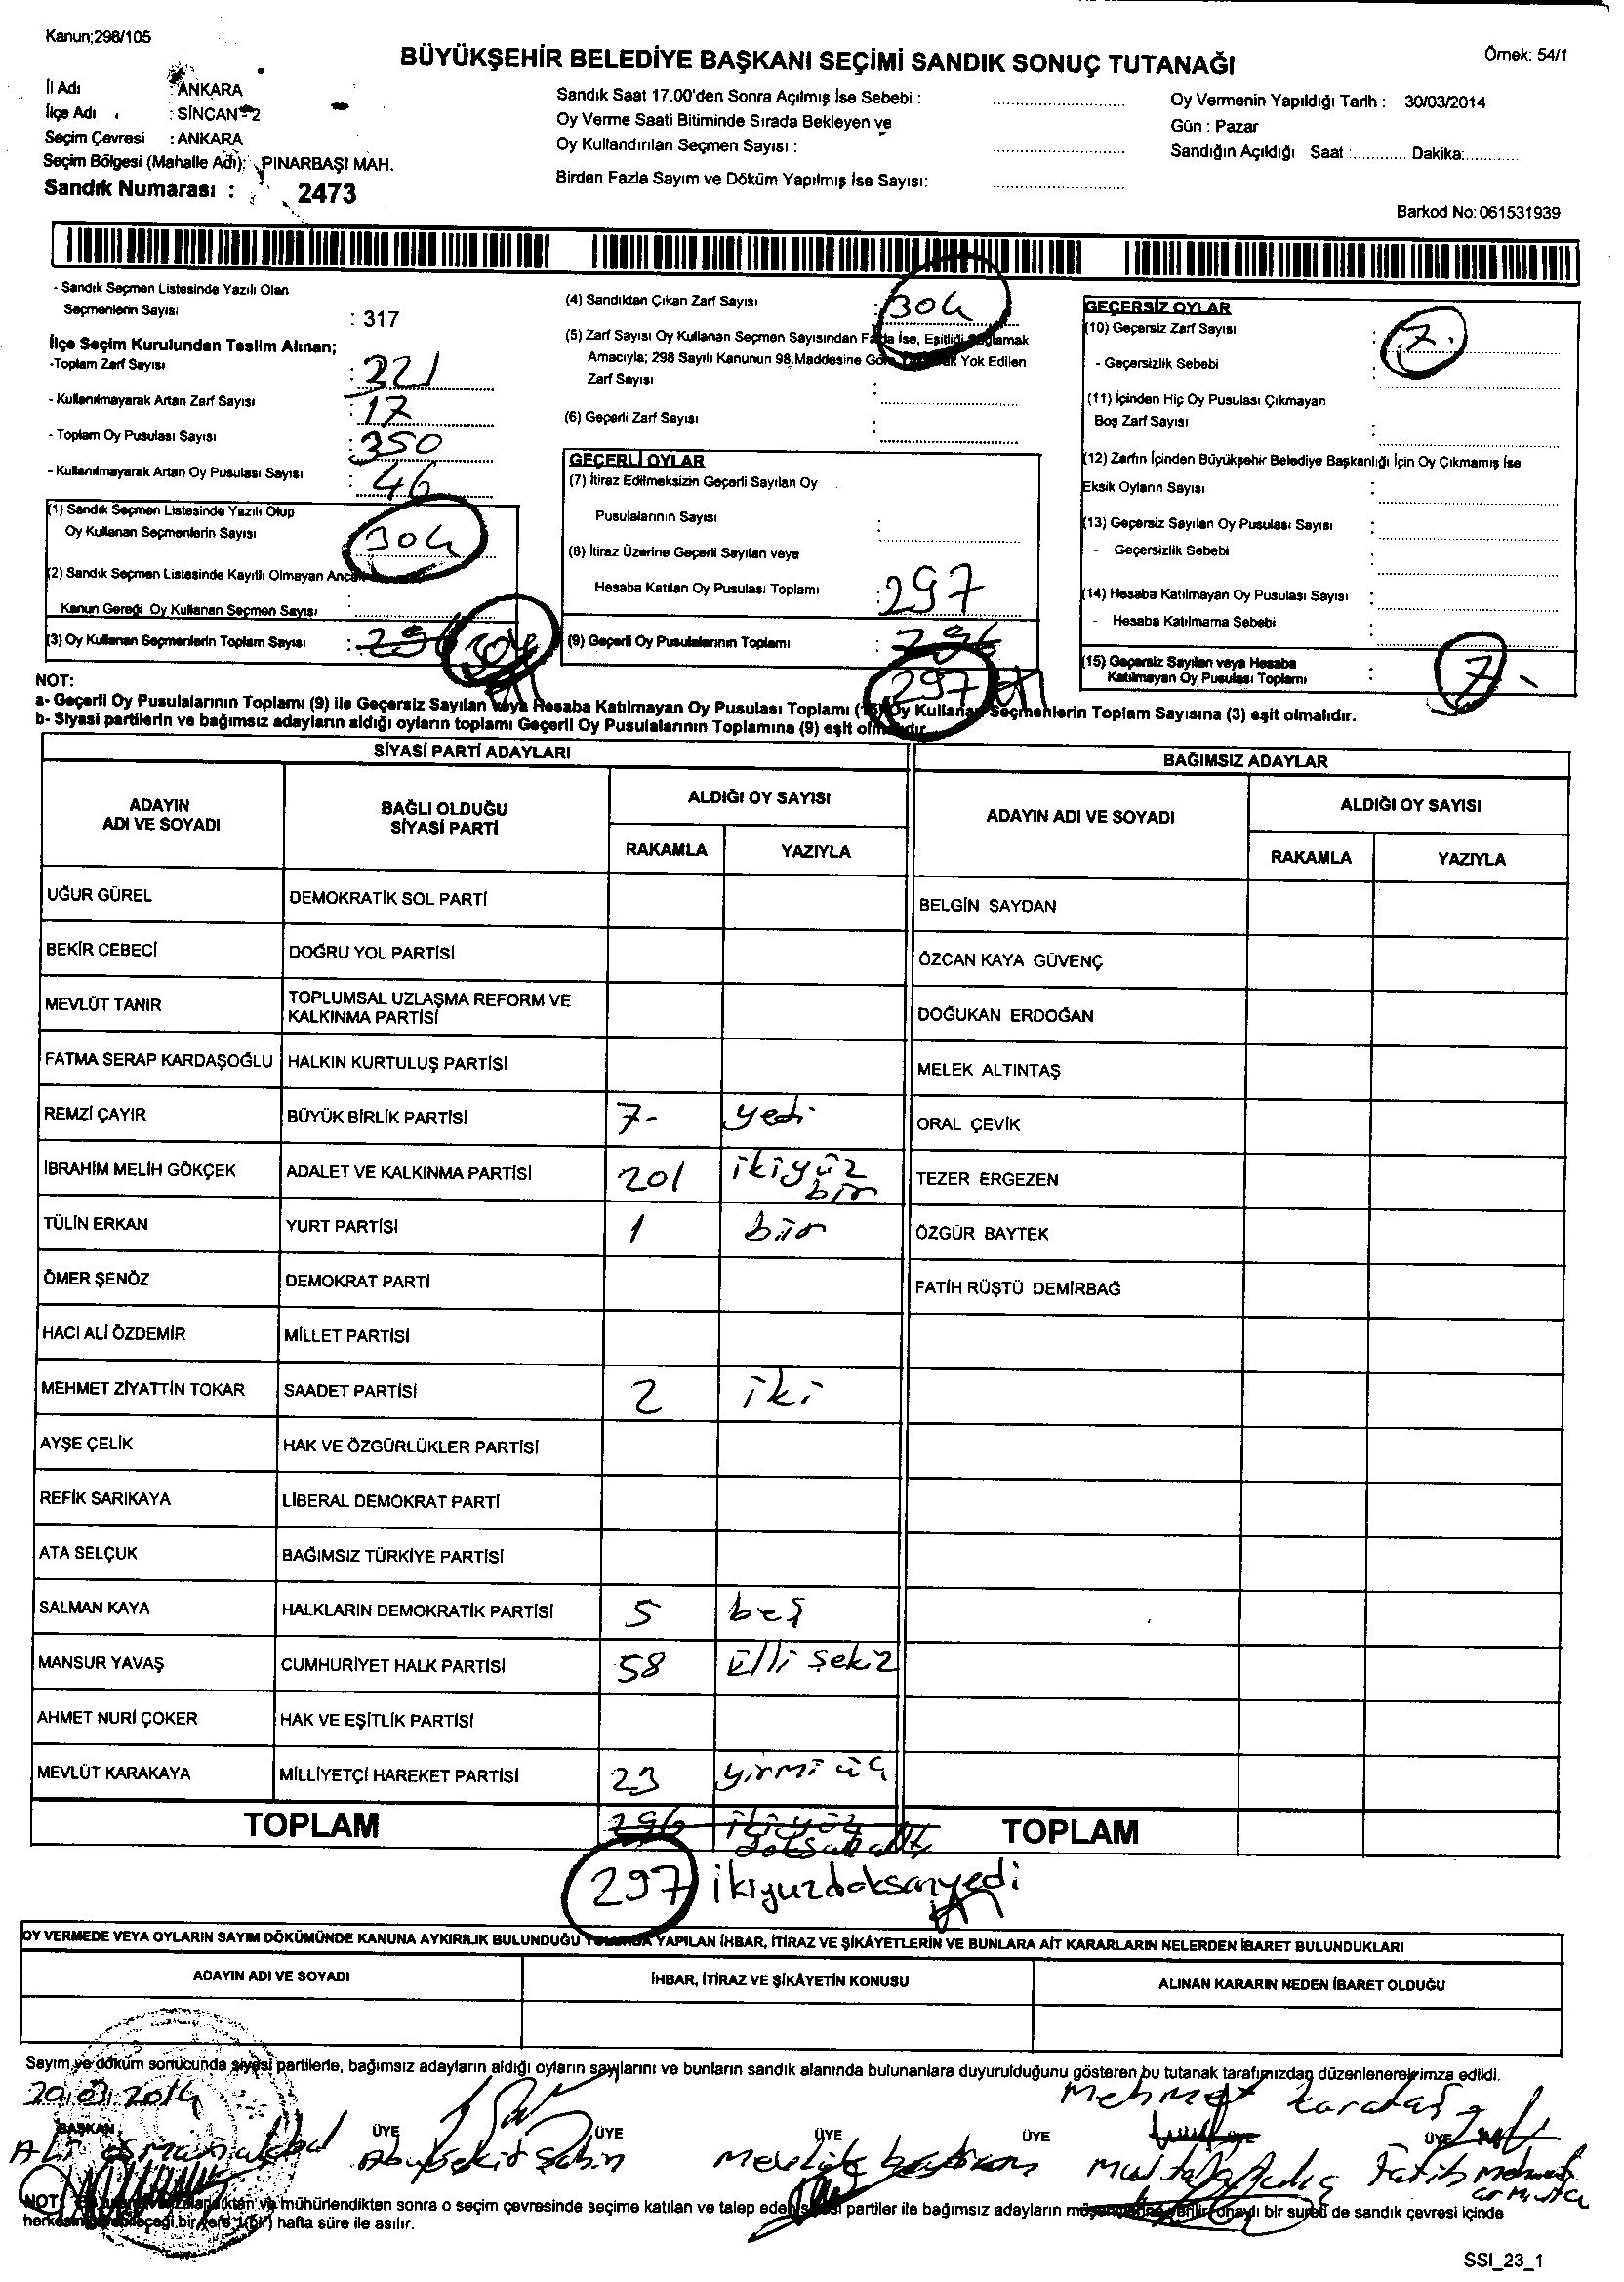 Kanun;298/105
BÜYÜKŞEHİR BELEDİYE BAŞKANI SEÇİMİ SANDIK SONUÇ TUTANAĞI
Örnek: 54/1
İl Adı : ANKARA
İlçe Adı : SİNCAN-2
Seçim Çevresi : ANKARA
Seçim Bölgesi (Mahalle Adı): PINARBAŞI MAH.
Sandık Numarası : 2473
Sandık Saat 17.00'den Sonra Açılmış İse Sebebi :
Oy Verme Saati Bitiminde Sırada Bekleyen ve
Oy Kullandırılan Seçmen Sayısı :
Birden Fazla Sayım ve Döküm Yapılmış İse Sayısı:
Oy Vermenin Yapıldığı Tarih : 30/03/2014
Gün : Pazar
Sandığın Açıldığı Saat :............ Dakika:............
Barkod No: 061531939
- Sandık Seçmen Listesinde Yazılı Olan
Seçmenlerin Sayısı : 317
İlçe Seçim Kurulundan Teslim Alınan;
-Toplam Zarf Sayısı : 321
- Kullanılmayarak Artan Zarf Sayısı : 17
- Toplam Oy Pusulası Sayısı : 350
- Kullanılmayarak Artan Oy Pusulası Sayısı : 46
(1) Sandık Seçmen Listesinde Yazılı Olup
Oy Kullanan Seçmenlerin Sayısı 304
(2) Sandık Seçmen Listesinde Kayıtlı Olmayan Ancak
Kanun Gereği Oy Kullanan Seçmen Sayısı :
(3) Oy Kullanan Seçmenlerin Toplam Sayısı : 296 304
(4) Sandıktan Çıkan Zarf Sayısı : 304
(5) Zarf Sayısı Oy Kullanan Seçmen Sayısından Fazla İse, Eşitliği Sağlamak
Amacıyla; 298 Sayılı Kanunun 98.Maddesine Göre Yok Edilen
Zarf Sayısı :
(6) Geçerli Zarf Sayısı :
GEÇERLİ OYLAR
(7) İtiraz Edilmeksizin Geçerli Sayılan Oy
Pusulalarının Sayısı :
(8) İtiraz Üzerine Geçerli Sayılan veya
Hesaba Katılan Oy Pusulası Toplamı : 297
(9) Geçerli Oy Pusulalarının Toplamı : 296
297
GEÇERSİZ OYLAR
(10) Geçersiz Zarf Sayısı : 7.
- Geçersizlik Sebebi :
(11) İçinden Hiç Oy Pusulası Çıkmayan
Boş Zarf Sayısı :
(12) Zarfın İçinden Büyükşehir Belediye Başkanlığı İçin Oy Çıkmamış İse
Eksik Oyların Sayısı :
(13) Geçersiz Sayılan Oy Pusulası Sayısı :
- Geçersizlik Sebebi :
(14) Hesaba Katılmayan Oy Pusulası Sayısı :
- Hesaba Katılmama Sebebi :
(15) Geçersiz Sayılan veya Hesaba
Katılmayan Oy Pusulası Toplamı : 7-
NOT:
a- Geçerli Oy Pusulalarının Toplamı (9) ile Geçersiz Sayılan veya Hesaba Katılmayan Oy Pusulası Toplamı (15) Oy Kullanan Seçmenlerin Toplam Sayısına (3) eşit olmalıdır.
b- Siyasi partilerin ve bağımsız adayların aldığı oyların toplamı Geçerli Oy Pusulalarının Toplamına (9) eşit olmalıdır.
SİYASİ PARTİ ADAYLARI
BAĞIMSIZ ADAYLAR
ADAYIN ADI VE SOYADI
BAĞLI OLDUĞU SİYASİ PARTİ
ALDIĞI OY SAYISI
ADAYIN ADI VE SOYADI
ALDIĞI OY SAYISI
RAKAMLA YAZIYLA RAKAMLA YAZIYLA
UĞUR GÜREL DEMOKRATİK SOL PARTİ BELGİN SAYDAN
BEKİR CEBECİ DOĞRU YOL PARTİSİ ÖZCAN KAYA GÜVENÇ
MEVLÜT TANIR TOPLUMSAL UZLAŞMA REFORM VE KALKINMA PARTİSİ DOĞUKAN ERDOĞAN
FATMA SERAP KARDAŞOĞLU HALKIN KURTULUŞ PARTİSİ MELEK ALTINTAŞ
REMZİ ÇAYIR BÜYÜK BİRLİK PARTİSİ 7- yedi ORAL ÇEVİK
İBRAHİM MELİH GÖKÇEK ADALET VE KALKINMA PARTİSİ 201 ikiyüz bir TEZER ERGEZEN
TÜLİN ERKAN YURT PARTİSİ 1 bir ÖZGÜR BAYTEK
ÖMER ŞENÖZ DEMOKRAT PARTİ FATİH RÜŞTÜ DEMİRBAĞ
HACI ALİ ÖZDEMİR MİLLET PARTİSİ
MEHMET ZİYATTİN TOKAR SAADET PARTİSİ 2 iki
AYŞE ÇELİK HAK VE ÖZGÜRLÜKLER PARTİSİ
REFİK SARIKAYA LİBERAL DEMOKRAT PARTİ
ATA SELÇUK BAĞIMSIZ TÜRKİYE PARTİSİ
SALMAN KAYA HALKLARIN DEMOKRATİK PARTİSİ 5 beş
MANSUR YAVAŞ CUMHURİYET HALK PARTİSİ 58 Elli sekiz
AHMET NURİ ÇOKER HAK VE EŞİTLİK PARTİSİ
MEVLÜT KARAKAYA MİLLİYETÇİ HAREKET PARTİSİ 23 yirmi üç
TOPLAM 296 ikiyüz doksan altı TOPLAM
297 ikiyuzdoksanyedi
OY VERMEDE VEYA OYLARIN SAYIM DÖKÜMÜNDE KANUNA AYKIRILIK BULUNDUĞU YOLUNDA YAPILAN İHBAR, İTİRAZ VE ŞİKÂYETLERİN VE BUNLARA AİT KARARLARIN NELERDEN İBARET BULUNDUKLARI
ADAYIN ADI VE SOYADI İHBAR, İTİRAZ VE ŞİKÂYETİN KONUSU ALINAN KARARIN NEDEN İBARET OLDUĞU
Sayım ve döküm sonucunda siyasi partilerle, bağımsız adayların aldığı oyların sayılarını ve bunların sandık alanında bulunanlara duyurulduğunu gösteren bu tutanak tarafımızdan düzenlenerek imza edildi.
Mehmet Karataş
BAŞKAN ÜYE ÜYE ÜYE ÜYE ÜYE ÜYE
Ali Osman Abubekir Şahin Mustafa Fatih Mehmet
NOT: mühürlendikten sonra o seçim çevresinde seçime katılan ve talep eden siyasi partiler ile bağımsız adayların bir sureti de sandık çevresi içinde
bir yere 1(bir) hafta süre ile asılır.
SSI_23_1